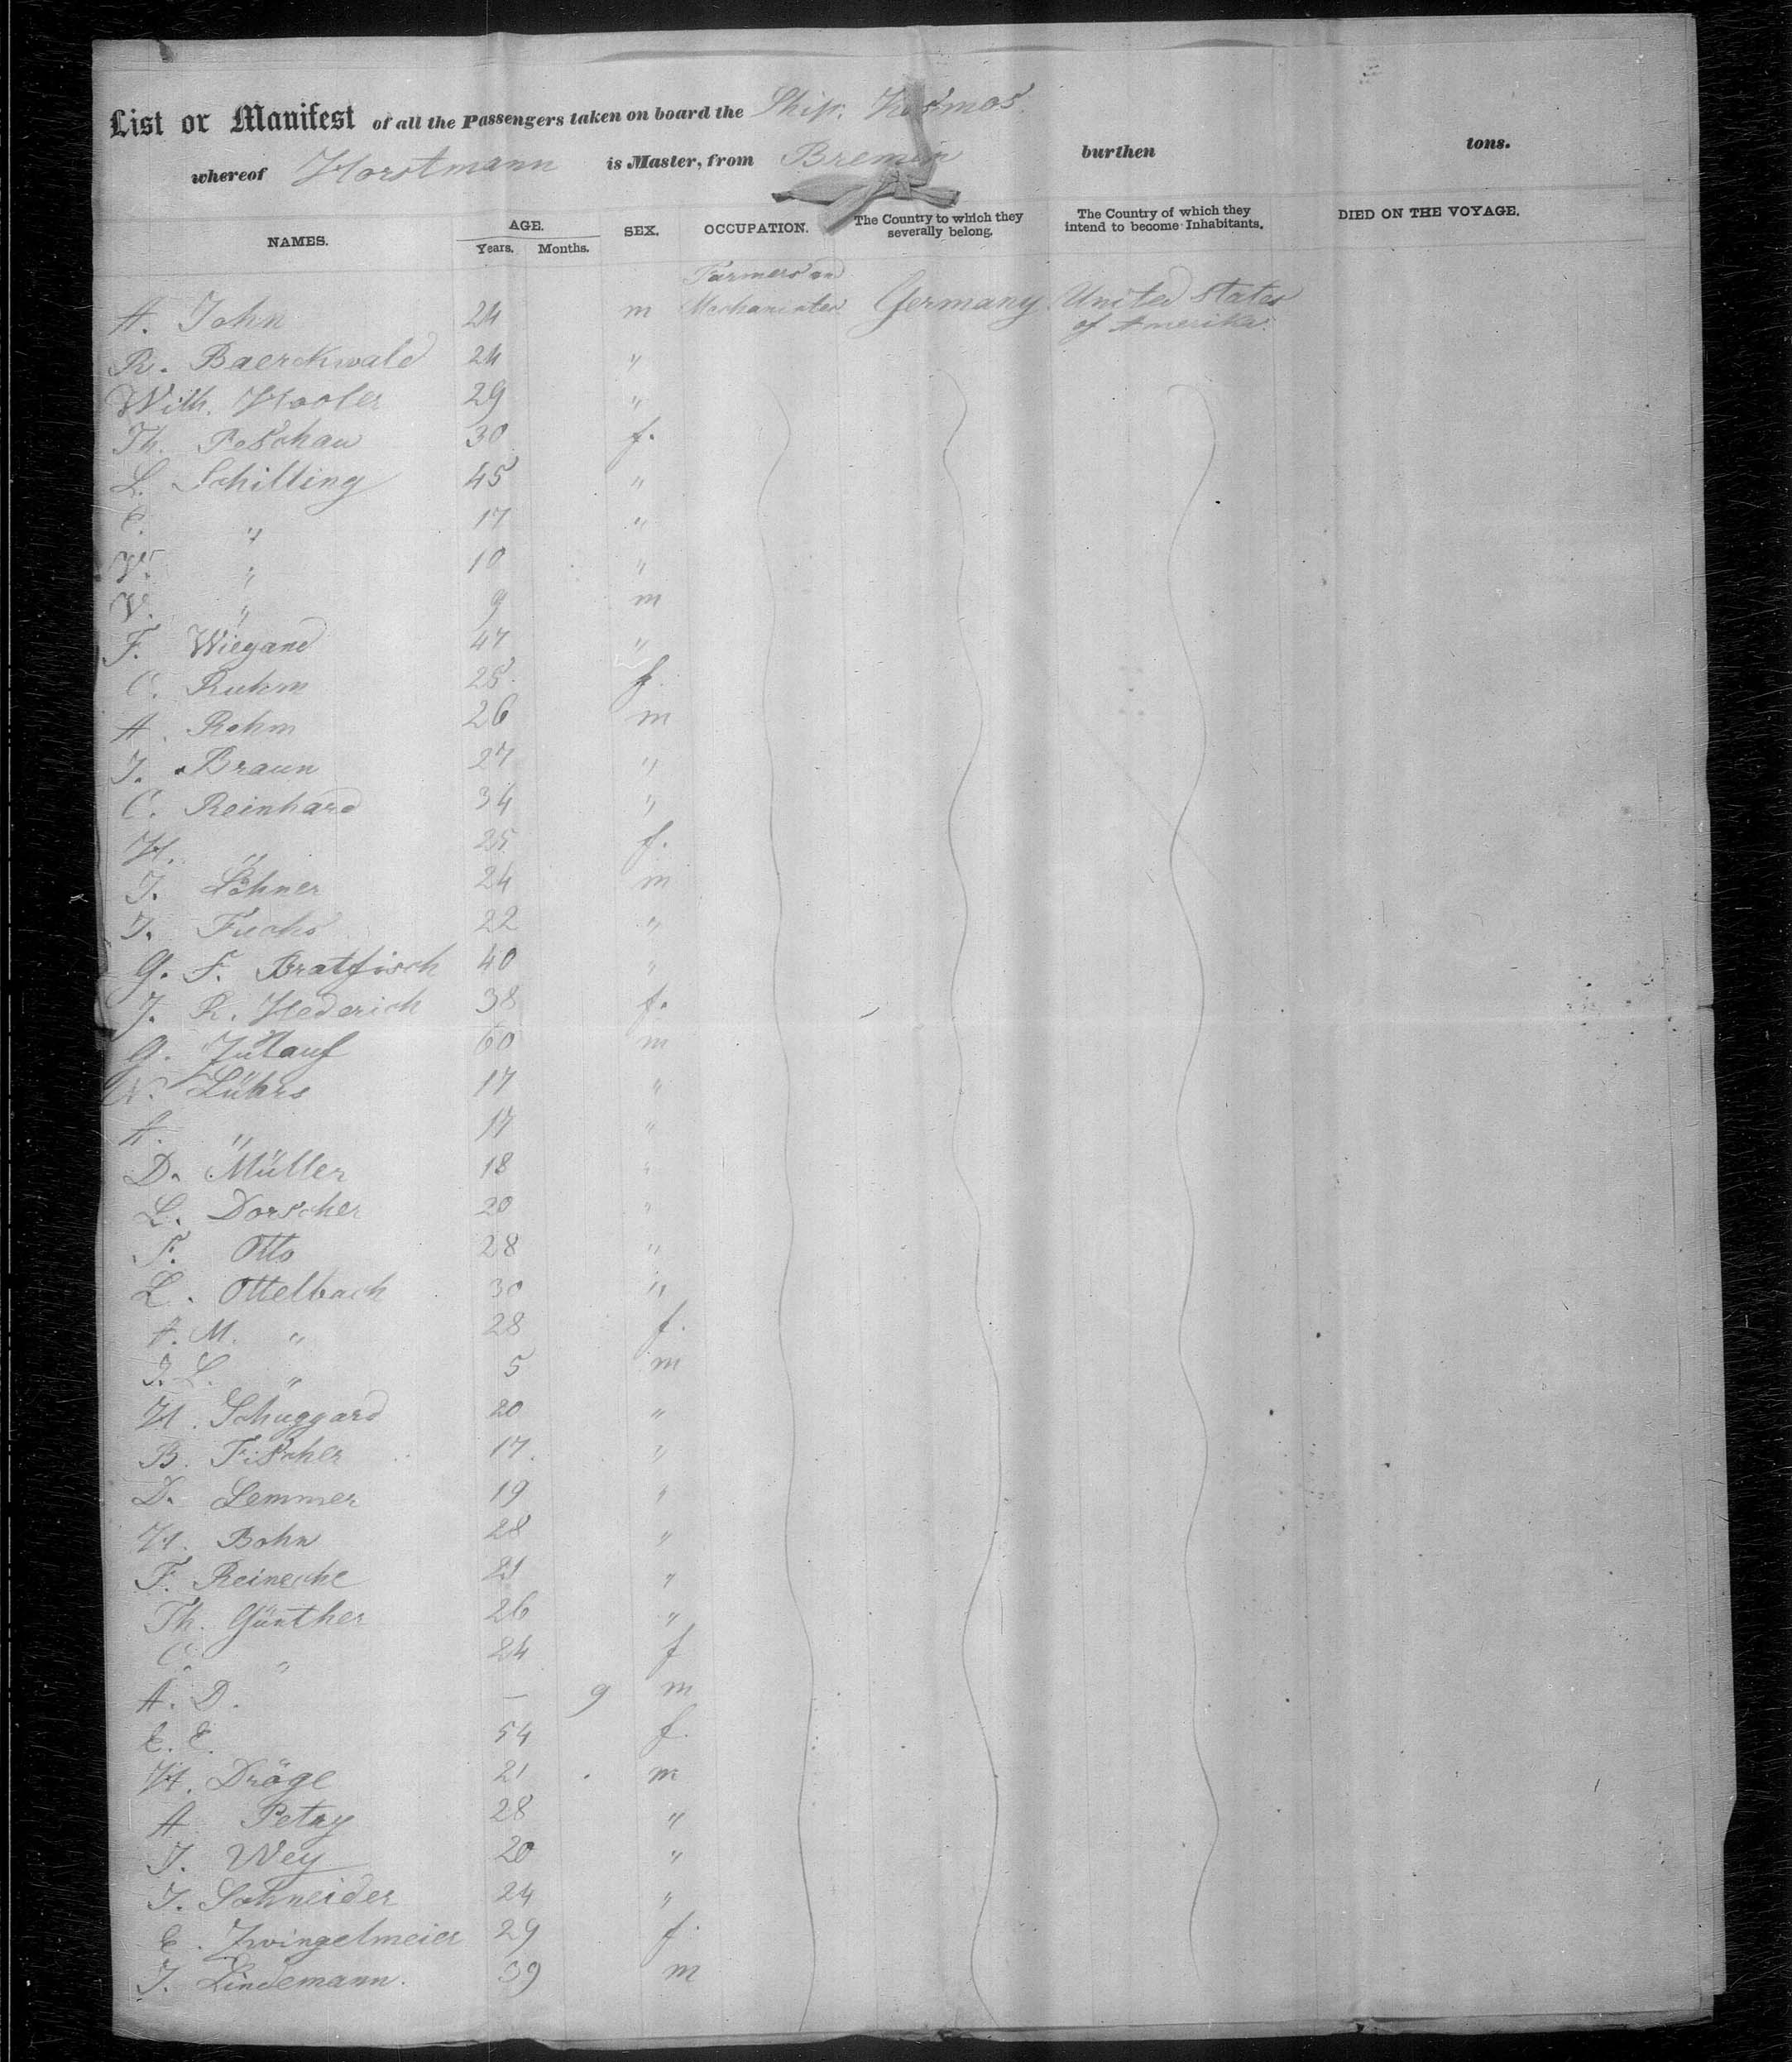 List or Manifest of all the Passengers taken on board the Ship. Kosmos.
whereof Horstmann is Master, from Bremen burthen tons.
NAMES. AGE. SEX. OCCUPATION. The Country to which they severally belong. The Country of which they intend to become Inhabitants. DIED ON THE VOYAGE.
Years. Months.
Farmers and
A. John 24 m Germany United States
of Amerika.
R. Baerckwald 24 "
Wilh. 29 "
Th. Peschau 30 f.
L. Schilling 45 "
C. " 17 "
" 10 "
V. " 9 m
F. Wiegand 47 "
C. Ruhm 25. f.
A. Rehm 26 m
J. Braun 27 "
C. Reinhard 34 "
H. " 25 f.
J. Löhner 24 m
J. Fuchs 22 "
G. F. Bratfisch 40 "
J. R. Hederich 38 f.
G. Zulauf 60 m
N. Lührs 17 "
A. " 17 "
D. Müller 18 "
L. Dorscher 20 "
F. Otto 28 "
L. Ottelbach 30 "
A. M. " 28 f.
J. L. " 5 m
H. Schuggard 20 "
B. Fischer 17. "
D. Lemmer 19 "
H. Bohn 28 "
F. Reinecke 21 "
Th. Günther 26 "
C. " 24 f
A. D. — 9 m
E. E. 54 f.
H. Dröge 21 m
A. Petry 28 "
J. Wey 20 "
J. Schneider 24 "
E. Zwingelmeier 29 f.
J. Lindemann. 39 m